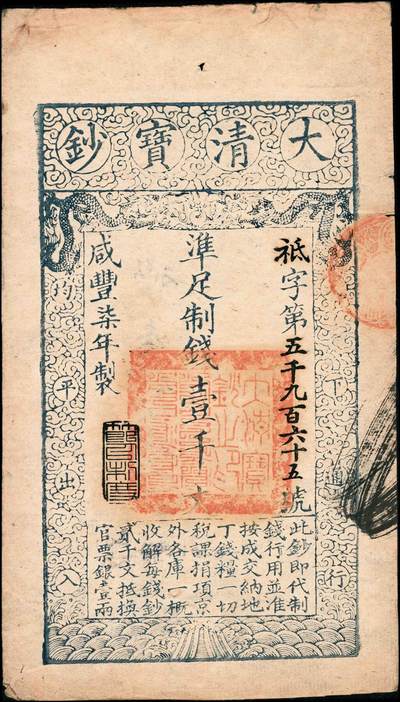 大清寶鈔
下通行
祗字第五千九百六十五號
準足制錢壹千文
咸豐柒年製
均平出入
此鈔即代制
錢行用並准
按成交納地
丁錢糧一切
稅課捐項京
外各庫一概
收解每錢鈔
貳千文抵換
官票銀壹兩